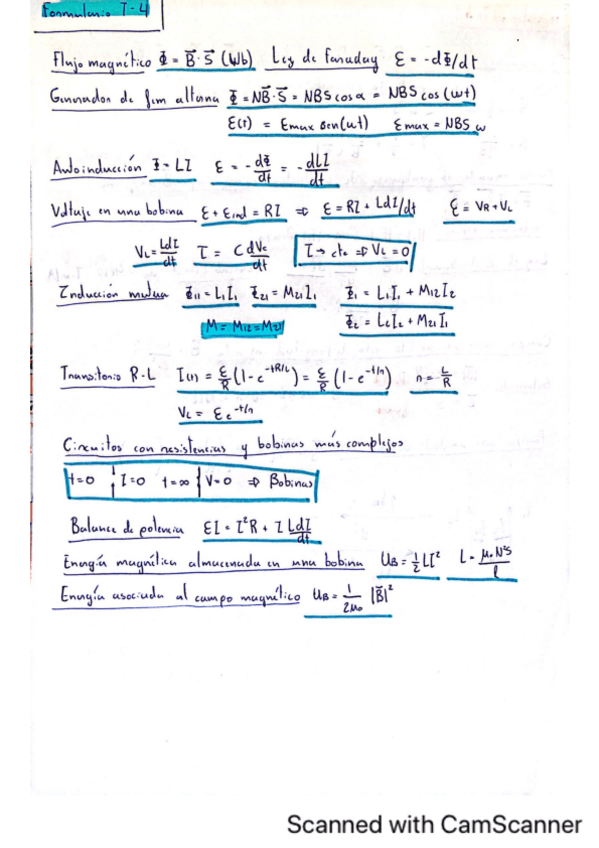 Formulario T-4
Flujo magnético Φ = B⃗·S⃗ (Wb) Ley de faraday ε = -dΦ/dt
Generador de fem alterna Φ = NB⃗·S⃗ = NBS cos α = NBS cos (ωt)
ε(t) = εmax sen(ωt) εmax = NBS ω
Autoinducción Φ = LI ε = -dΦ/dt = -dLI/dt
Voltaje en una bobina ε + εind = RI ⇒ ε = RI + LdI/dt ε = VR + VL
VL = LdI/dt I = C dVc/dt I → cte ⇒ VL = 0
Inducción mutua Φ11 = L1I1 Φ21 = M21I1 Φ1 = L1I1 + M12I2
M = M12 = M21 Φ2 = L2I2 + M21I1
Transitorio R-L I(t) = ε/R (1-e^-tR/L) = ε/R (1-e^-t/n) n = L/R
VL = εe^-t/n
Circuitos con resistencias y bobinas más complejos
t=0 { I=0 t=∞ { V=0 ⇒ Bobinas
Balance de potencia εI = I²R + I LdI/dt
Energía magnética almacenada en una bobina UB = ½ LI² L = μ0N²S/l
Energía asociada al campo magnético UB = 1/2μ0 |B⃗|²
Scanned with CamScanner